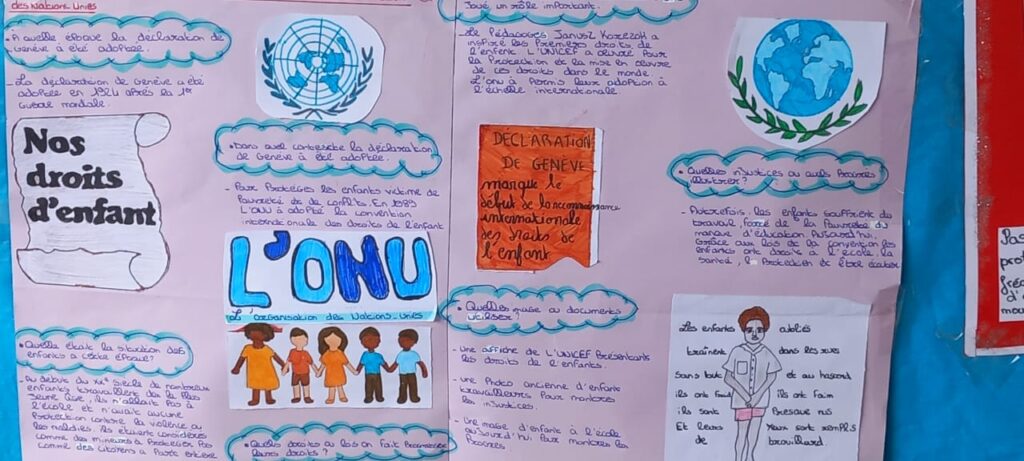 des Nations-Unies
• A quelle époque la déclaration de
Genève à été adoptée.
- La déclaration de Genève a été
adoptée en 1924 après la 1er
Guerre mondiale.
Nos
droits
d'enfant
• Quelle était la situation des
enfants à cette époque?
- Au début du XXe siècle de nombreux
enfants travaillent dar la plus
Jeune âge, ils n'allait Pas à
l'école et n'avait aucune
Protection contre la violence ou
les maladies. Ils étaient considérés
comme des mineurs à Protéger Pas
comme des citoyens à Parte entière
• Dans quel contexte la déclaration
de Genève à été adoptée.
- Pour Protéges les enfants victime de
Pauvreté de de conflits. En 1989
L'ONU à adopté la convention
internationale des droits de l'enfant
L'ONU
L'organisation des Nations-Unies
• Quels droits ou lois on fait Progresser
leurs droits?
Joué un rôle important.
- Le Pédagogue Janusz Korczak a
inspiré les Premiers droits de
l'enfant. L'UNICEF a œuvré Pour
la Protection et la mise en œuvre
de ces droits dans le monde.
L'onu à Permis leur adoption à
l'échelle internationale
DECLARATION
DE GENÈVE
marque le
début de la reconnaissance
internationale
des droits de
l'enfant
• Quelles image ou documents
utiliser?
- Une affiche de L'UNICEF Présentants
les droits de l'enfants.
- Une Photo ancienne d'enfants
travailleurs Pour montrer
les injustices.
- Une image d'enfants à l'école
aujourd'hui Pour montrer les
Progrès
• Quelles injustices ou quels Progrès
illustrer?
- Autrefois, les enfants souffraient du
travail, forcé de la Pauvreté du
manque d'éducation Aujourd'hui.
Grâce aux lois de la convention les
enfants ont droits à l'école, la
santé, la Protection et être écouter
Les enfants
traînent dans les rues
Sans but et au hasard
ils ont froid ils ont faim
ils sont Presque nus
Et leurs Yeux sont remplis
de brouillard.
Pas
prot
d'
mou